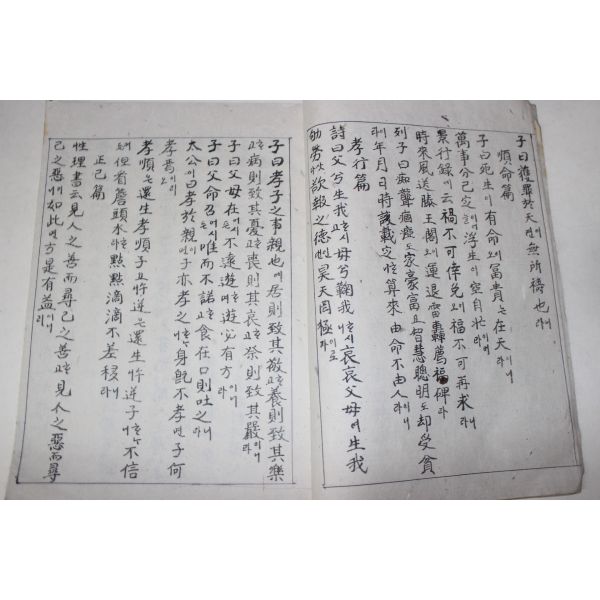 子曰獲罪於天이면無所禱也라니
順命篇
子曰死生이有命이오富貴는在天이라니
萬事分已定이어늘浮生이空自忙이라니
景行錄에云禍不可倖免이오福不可再求라니
時來風送滕王閣이오運退雷轟薦福碑라
列子曰痴聾痼瘂도家豪富요智慧聰明도却受貧
이라年月日時該載定하니算來由命不由人이라니
孝行篇
詩曰父兮生我하시고母兮鞠我하시니哀哀父母여生我
劬勞삿다欲報之德인대昊天罔極이로다
子曰孝子之事親也에居則致其敬하고養則致其樂
하고病則致其憂하고喪則致其哀하고祭則致其嚴이니라
子曰父母在어시든不遠遊하며遊必有方이니라
子曰父命召어시든唯而不諾하고食在口則吐之니라
太公이曰孝於親이면子亦孝之하나니身旣不孝면子何
孝焉이리오
孝順은還生孝順子요忤逆은還生忤逆子하나니不信
커든但看簷頭水하라點點滴滴不差移니라
正己篇
性理書云見人之善而尋己之善하고見人之惡而尋
己之惡이니如此면方是有益이니라